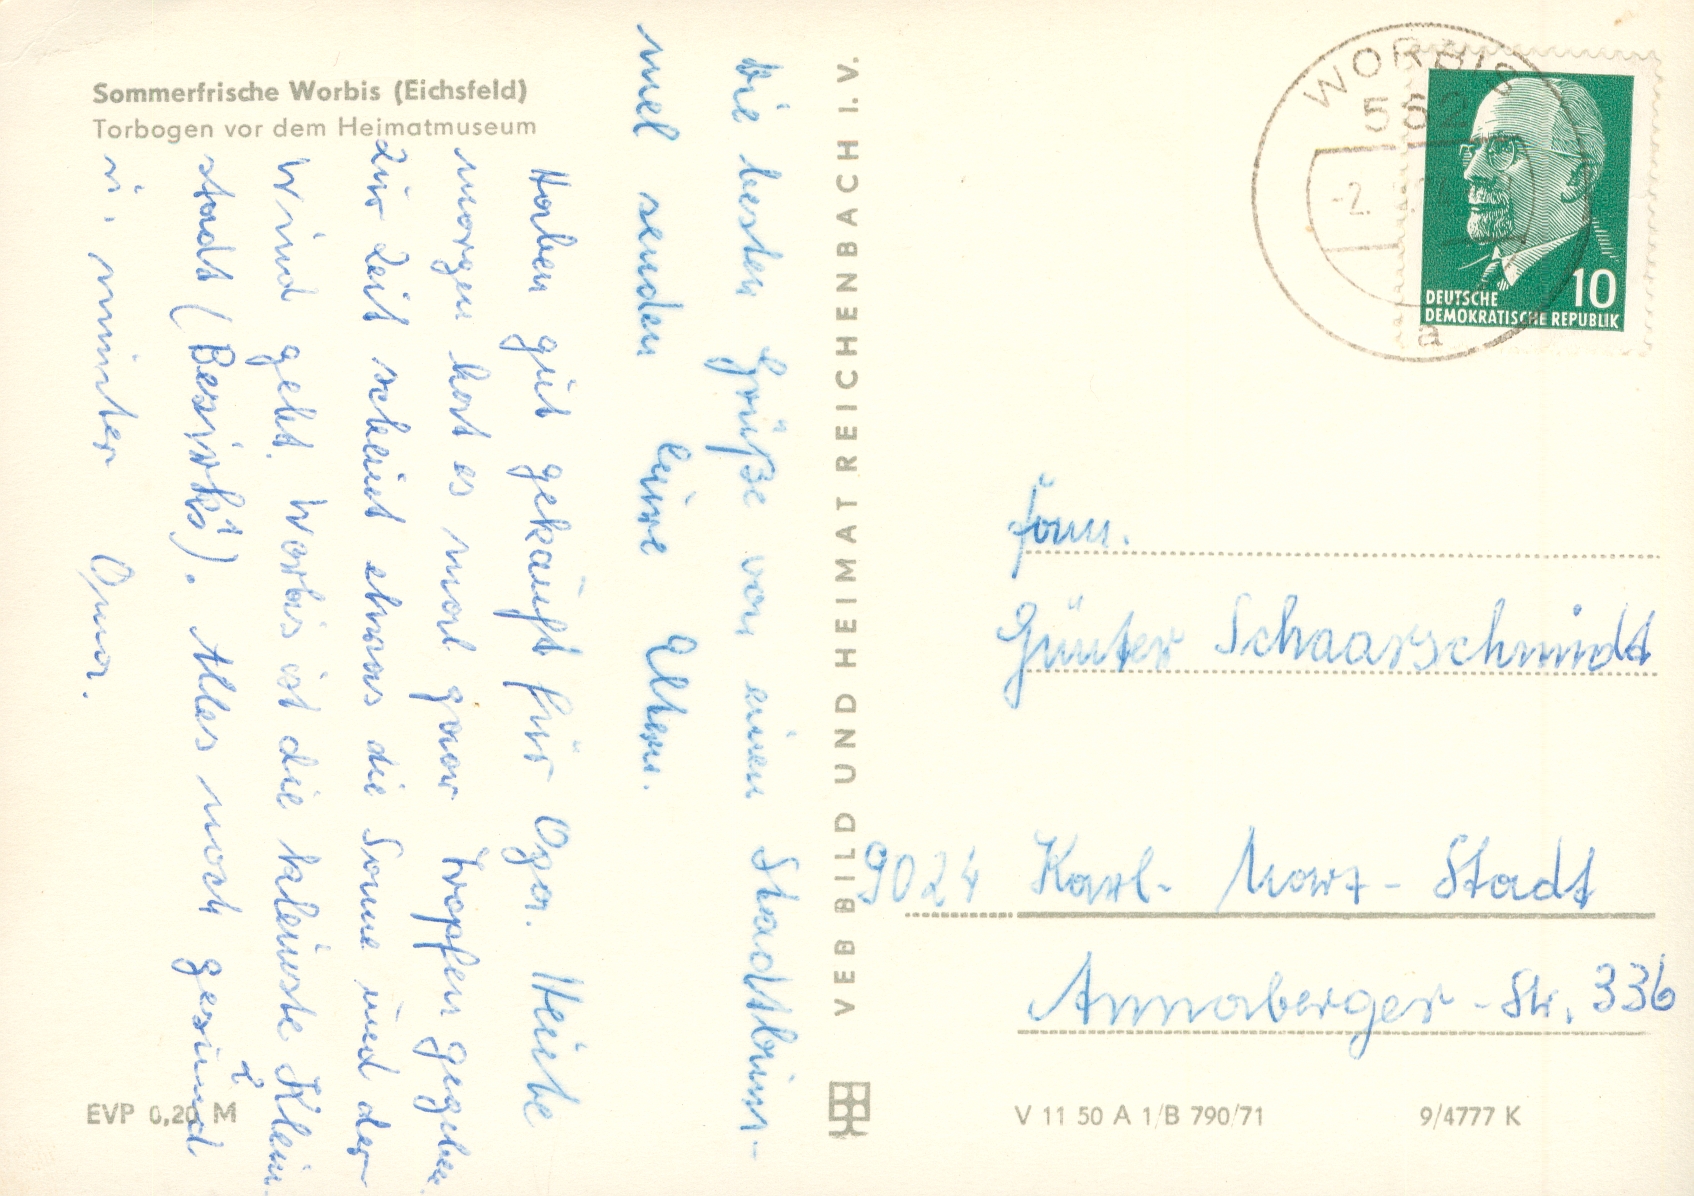 Sommerfrische Worbis (Eichsfeld)
Torbogen vor dem Heimatmuseum
Die besten Grüße von einem Stadtbum-
mel senden Eure Eltern.
Haben gut gekauft für Opa. Heute
morgen hat es mal paar Tropfen gegeben.
Zur Zeit scheint etwas die Sonne und der
Wind geht. Worbis ist die kleinste Klein-
stadt (Bezirks). Alles noch gesund
u. munter Oma.
VEB BILD UND HEIMAT REICHENBACH I. V.
WORBIS
562
-2.
a
10
DEUTSCHE
DEMOKRATISCHE REPUBLIK
Fam.
Günter Schaarschmidt
9024 Karl-Marx-Stadt
Annaberger-Str. 336
EVP 0,20 M
V 11 50 A 1/B 790/71
9/4777 K